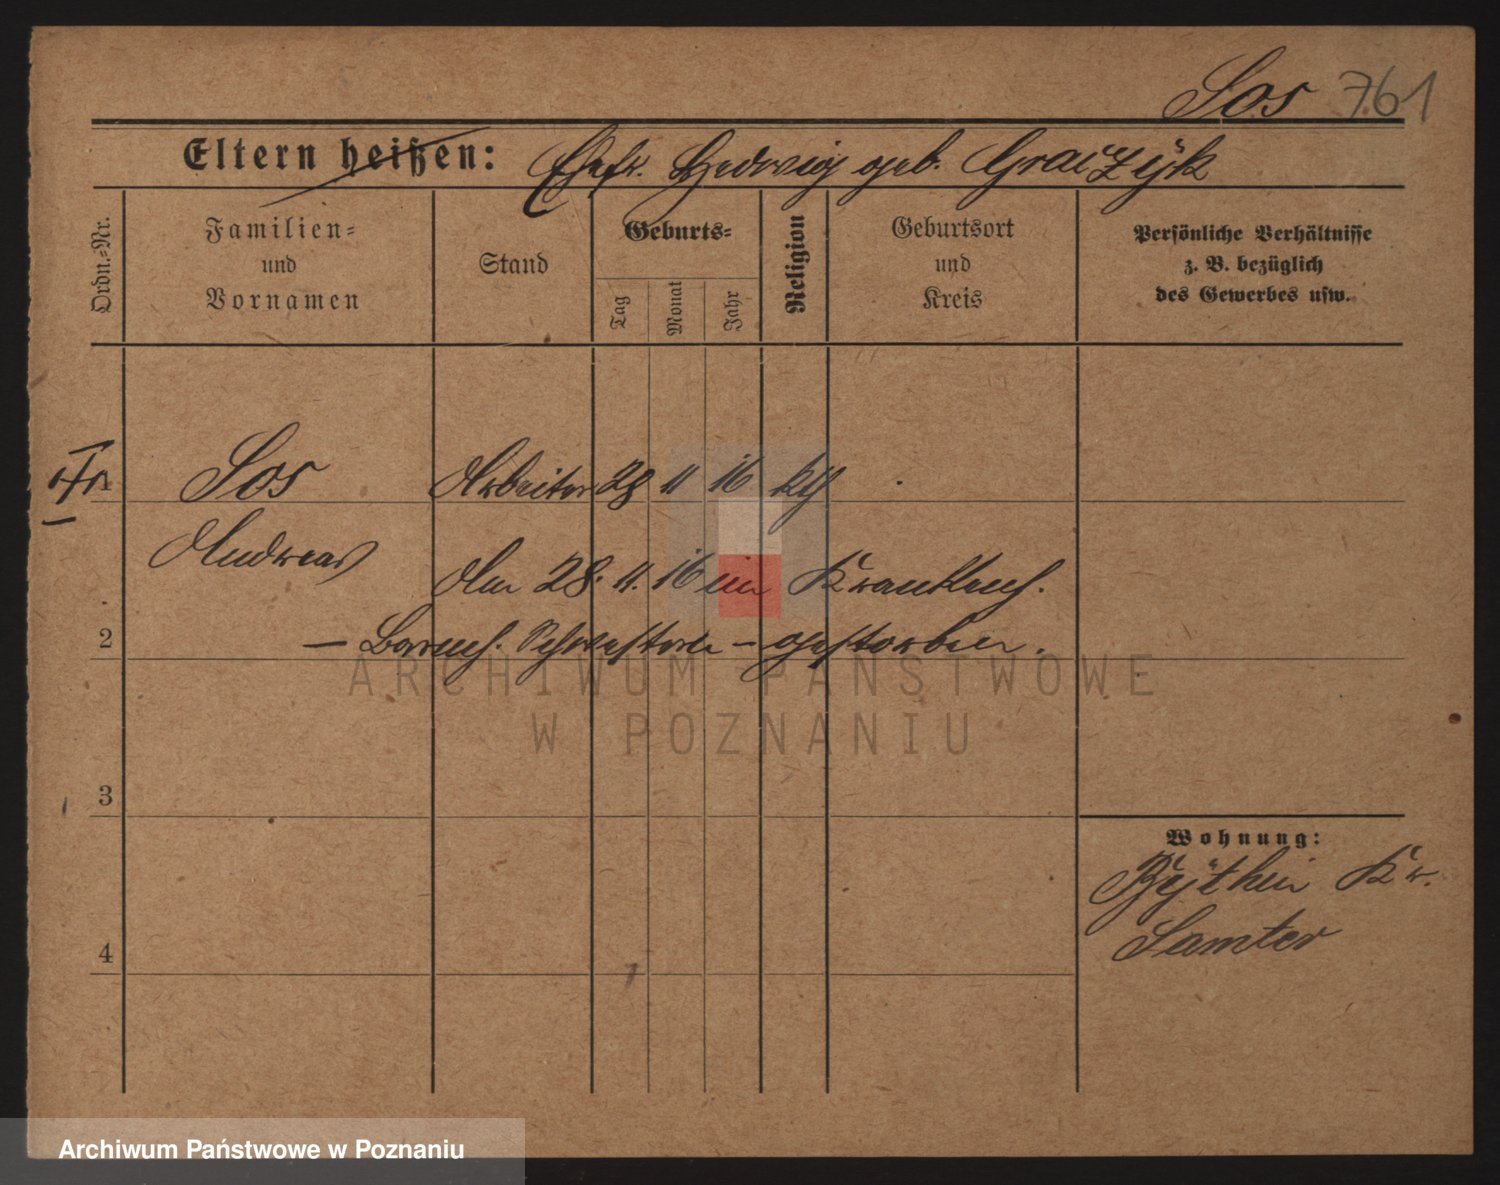 Sos 761
Eltern heißen: Ehefr. Hedwig geb. Graczÿk
Ordn.-Nr.
Familien-
und
Vornamen
Stand
Geburts-
Tag
Monat
Jahr
Religion
Geburtsort
und
Kreis
Persönliche Verhältnisse
z. B. bezüglich
des Gewerbes usw.
1 Sos Arbeiter 28 11 16 kth
Andreas
Am 28. 11. 16 im Krankenh.
2 – Barmh. Schwestern – gestorben.
3
4
Wohnung:
Kr.
Samter
ARCHIWUM PAŃSTWOWE
W POZNANIU
Archiwum Państwowe w Poznaniu